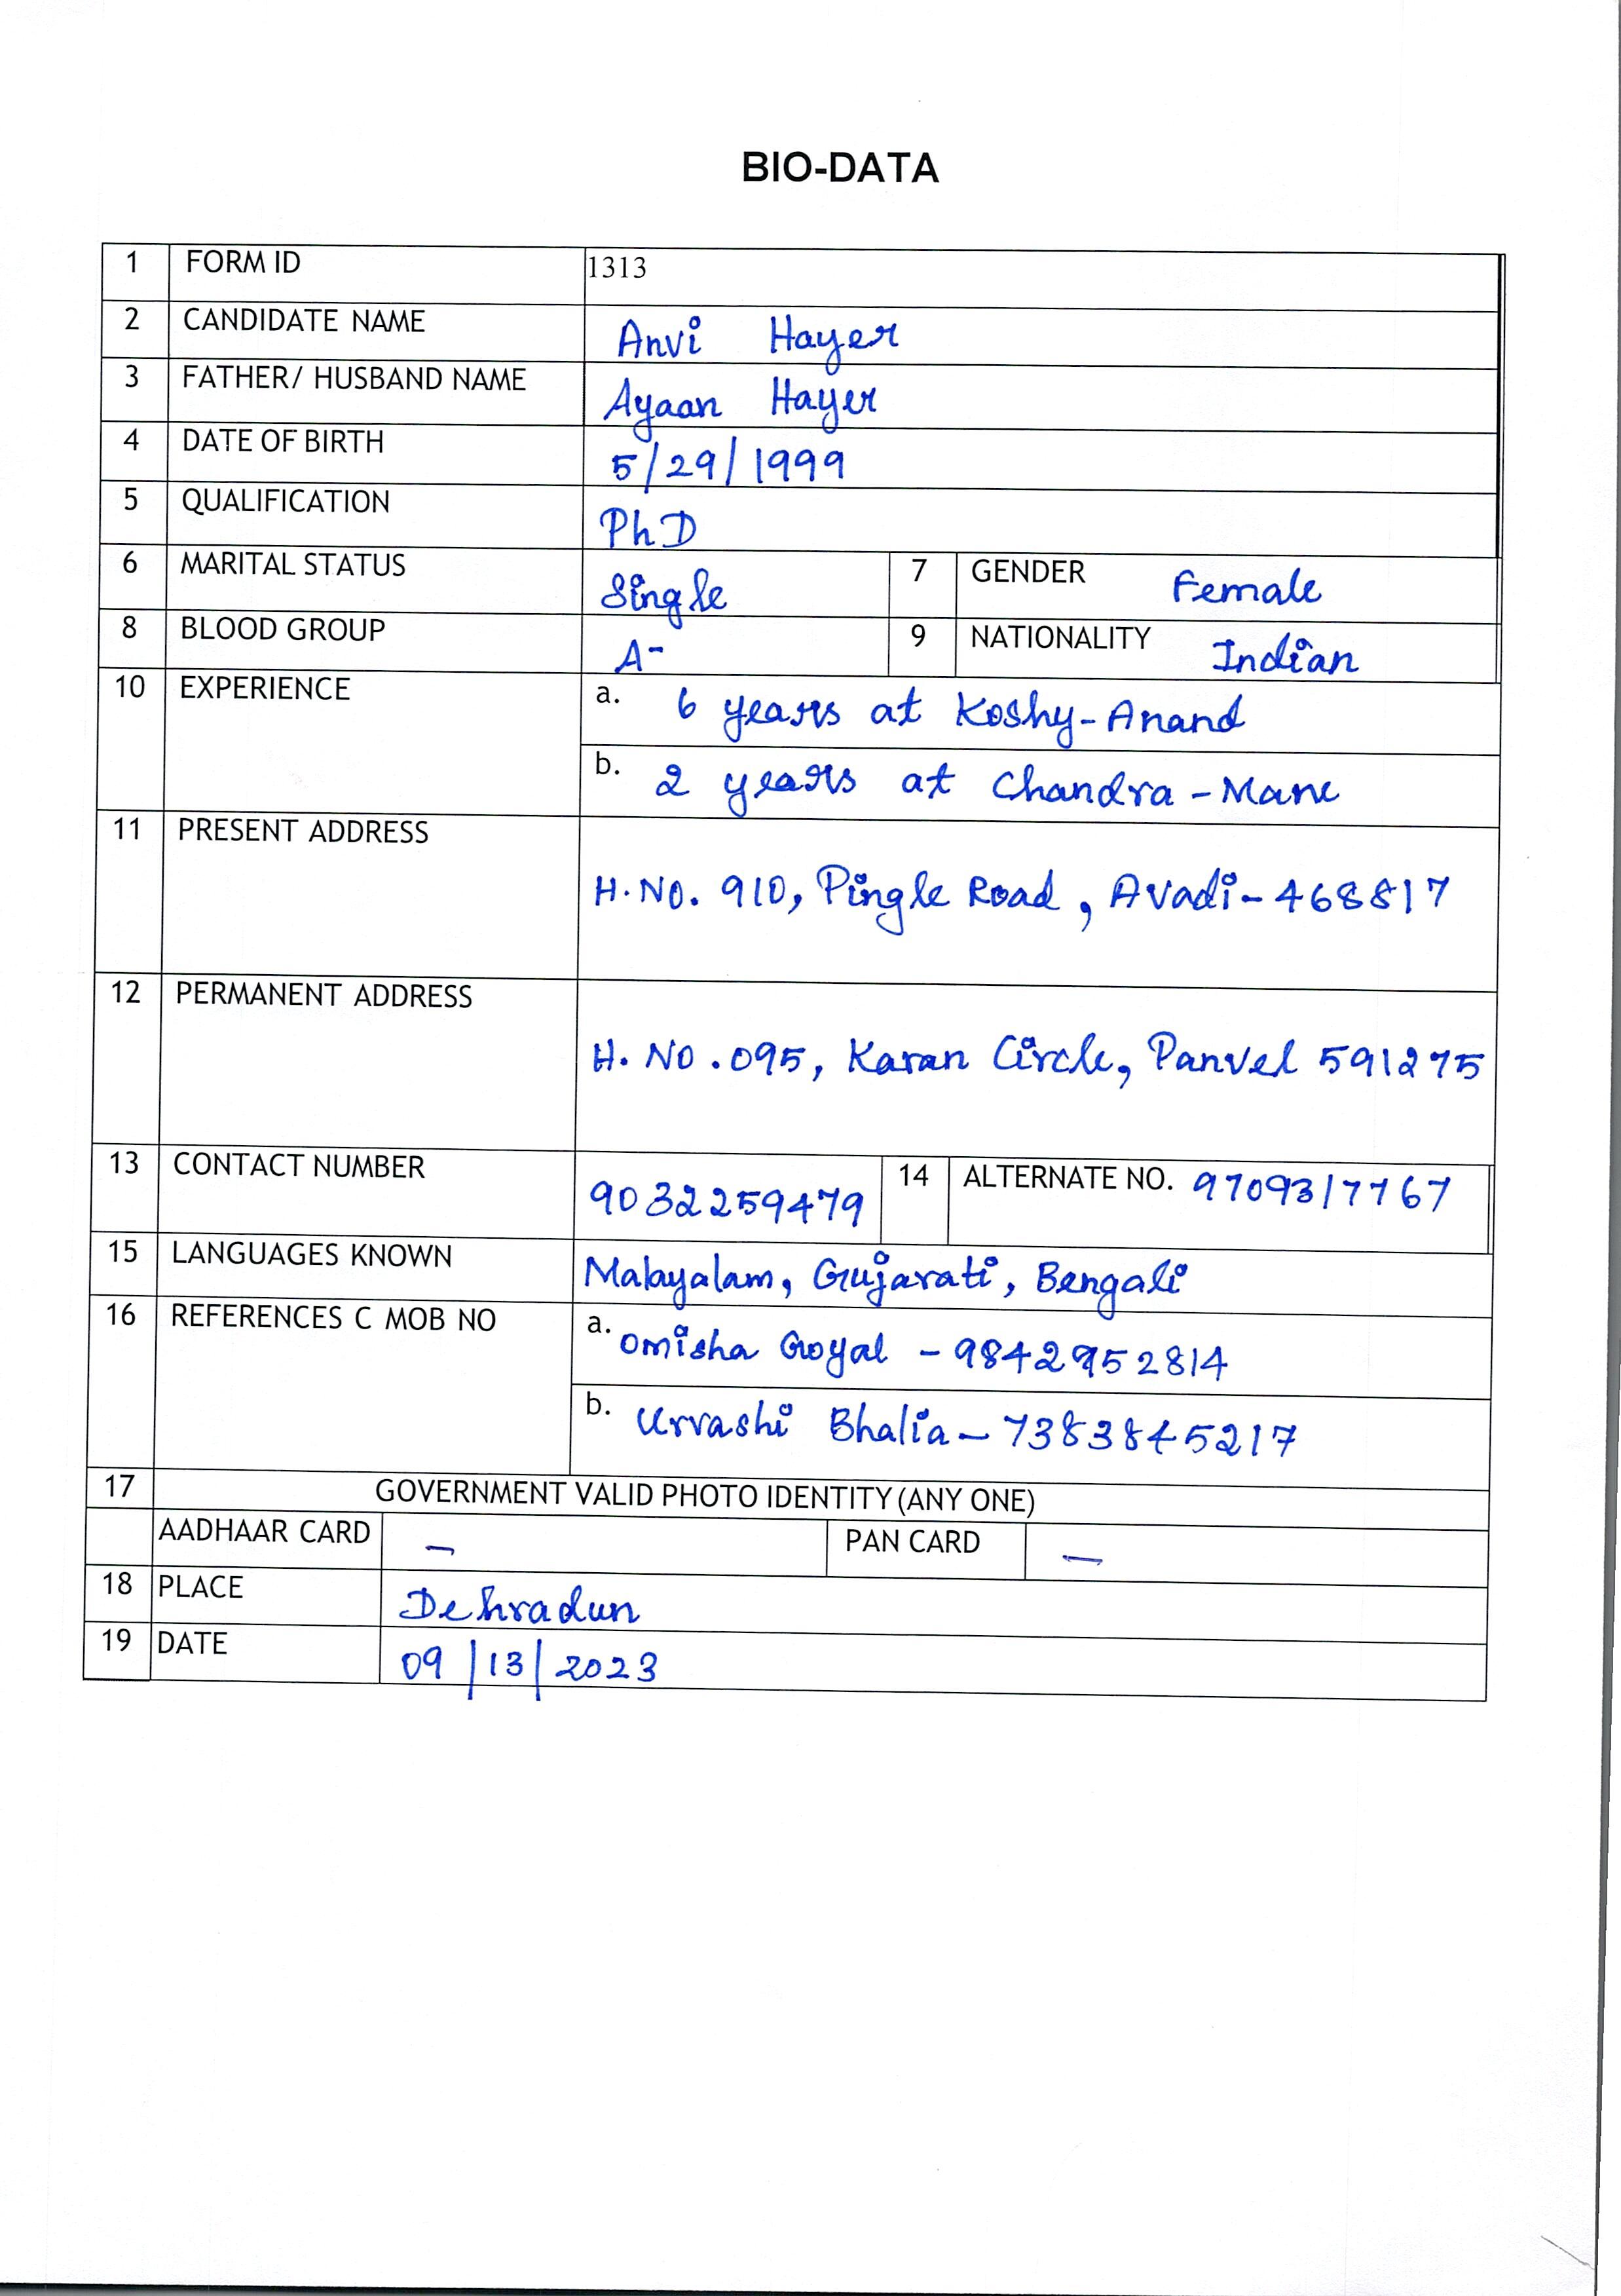 BIO-DATA
1 FORM ID 1313
2 CANDIDATE NAME Anvi Hayer
3 FATHER/ HUSBAND NAME Ayaan Hayer
4 DATE OF BIRTH 5/29/1999
5 QUALIFICATION PhD
6 MARITAL STATUS Single 7 GENDER Female
8 BLOOD GROUP A- 9 NATIONALITY Indian
10 EXPERIENCE a. 6 years at Koshy-Anand
b. 2 years at Chandra-Mane
11 PRESENT ADDRESS
H.NO. 910, Pingle Road, Avadi-468817
12 PERMANENT ADDRESS
H. NO. 095, Karan Circle, Panvel 591275
13 CONTACT NUMBER 9032259479 14 ALTERNATE NO. 9709317767
15 LANGUAGES KNOWN Malayalam, Gujarati, Bengali
16 REFERENCES C MOB NO a. Omisha Goyal - 9842952814
b. Urvashi Bhalia - 7383845217
17 GOVERNMENT VALID PHOTO IDENTITY (ANY ONE)
AADHAAR CARD — PAN CARD —
18 PLACE Dehradun
19 DATE 09/13/2023